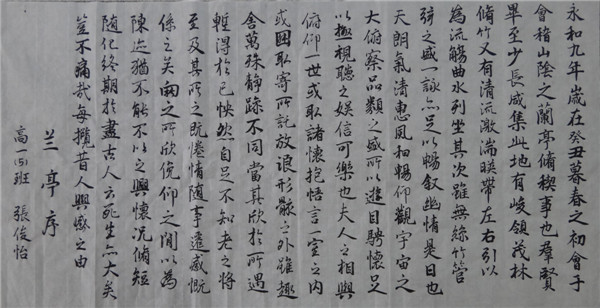 永和九年歲在癸丑暮春之初會于
會稽山陰之蘭亭脩稧事也羣賢
畢至少長咸集此地有峻領茂林
脩竹又有清流激湍暎帶左右引以
為流觴曲水列坐其次雖無絲竹管
弦之盛一詠亦足以暢叙幽情是日也
天朗氣清惠風和暢仰觀宇宙之
大俯察品類之盛所以遊目騁懷足
以極視聽之娛信可樂也夫人之相與
俯仰一世或取諸懷抱悟言一室之內
或因取寄所託放浪形骸之外雖趣
舍萬殊靜躁不同當其欣於所遇
暫得於己怏然自足不知老之將
至及其所之既惓情隨事遷感慨
係之矣向之所欣俛仰之閒以為
陳迹猶不能不以之興懷況脩短
隨化終期於盡古人云死生亦大矣
豈不痛哉每攬昔人興感之由
兰亭序
高一班 張俊怡